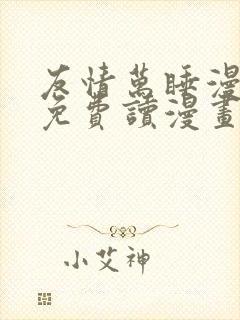 友情萬睡漫
免費讀漫畫
小艾神